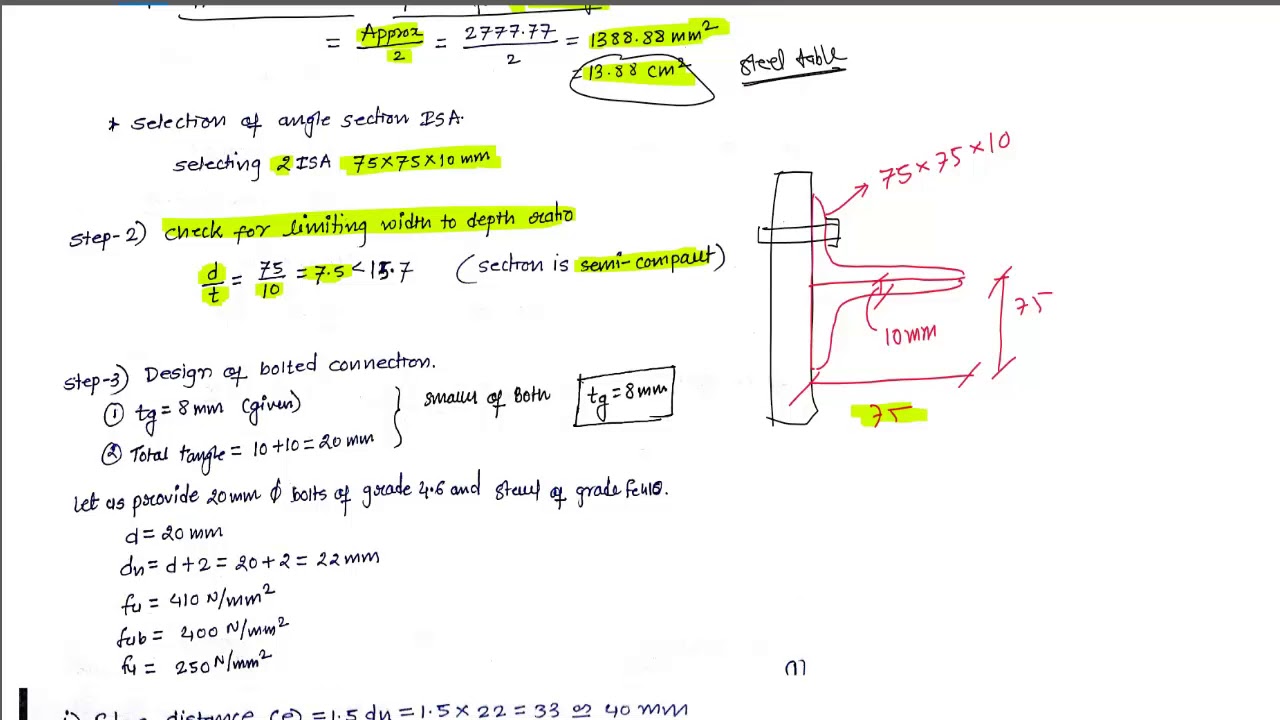 = Approx/2 = 2777.77/2 = 1388.88 mm²
= 13.88 cm²
Steel table
* selection of angle section ISA.
selecting 2 ISA 75×75×10 mm
75×75×10
step-2) check for limiting width to depth ratio
d/t = 75/10 = 7.5 < 15.7 (section is semi-compact)
75
10mm
75
step-3) Design of bolted connection.
① tg = 8 mm (given)
② Total tangle = 10+10 = 20 mm
smaller of both
tg = 8 mm
Let us provide 20mm ϕ bolts of grade 4.6 and steel of grade Fe410.
d = 20 mm
dn = d+2 = 20+2 = 22 mm
fu = 410 N/mm²
fub = 400 N/mm²
fy = 250 N/mm²
distance (e) = 1.5 dn = 1.5 × 22 = 33 ≃ 40 mm